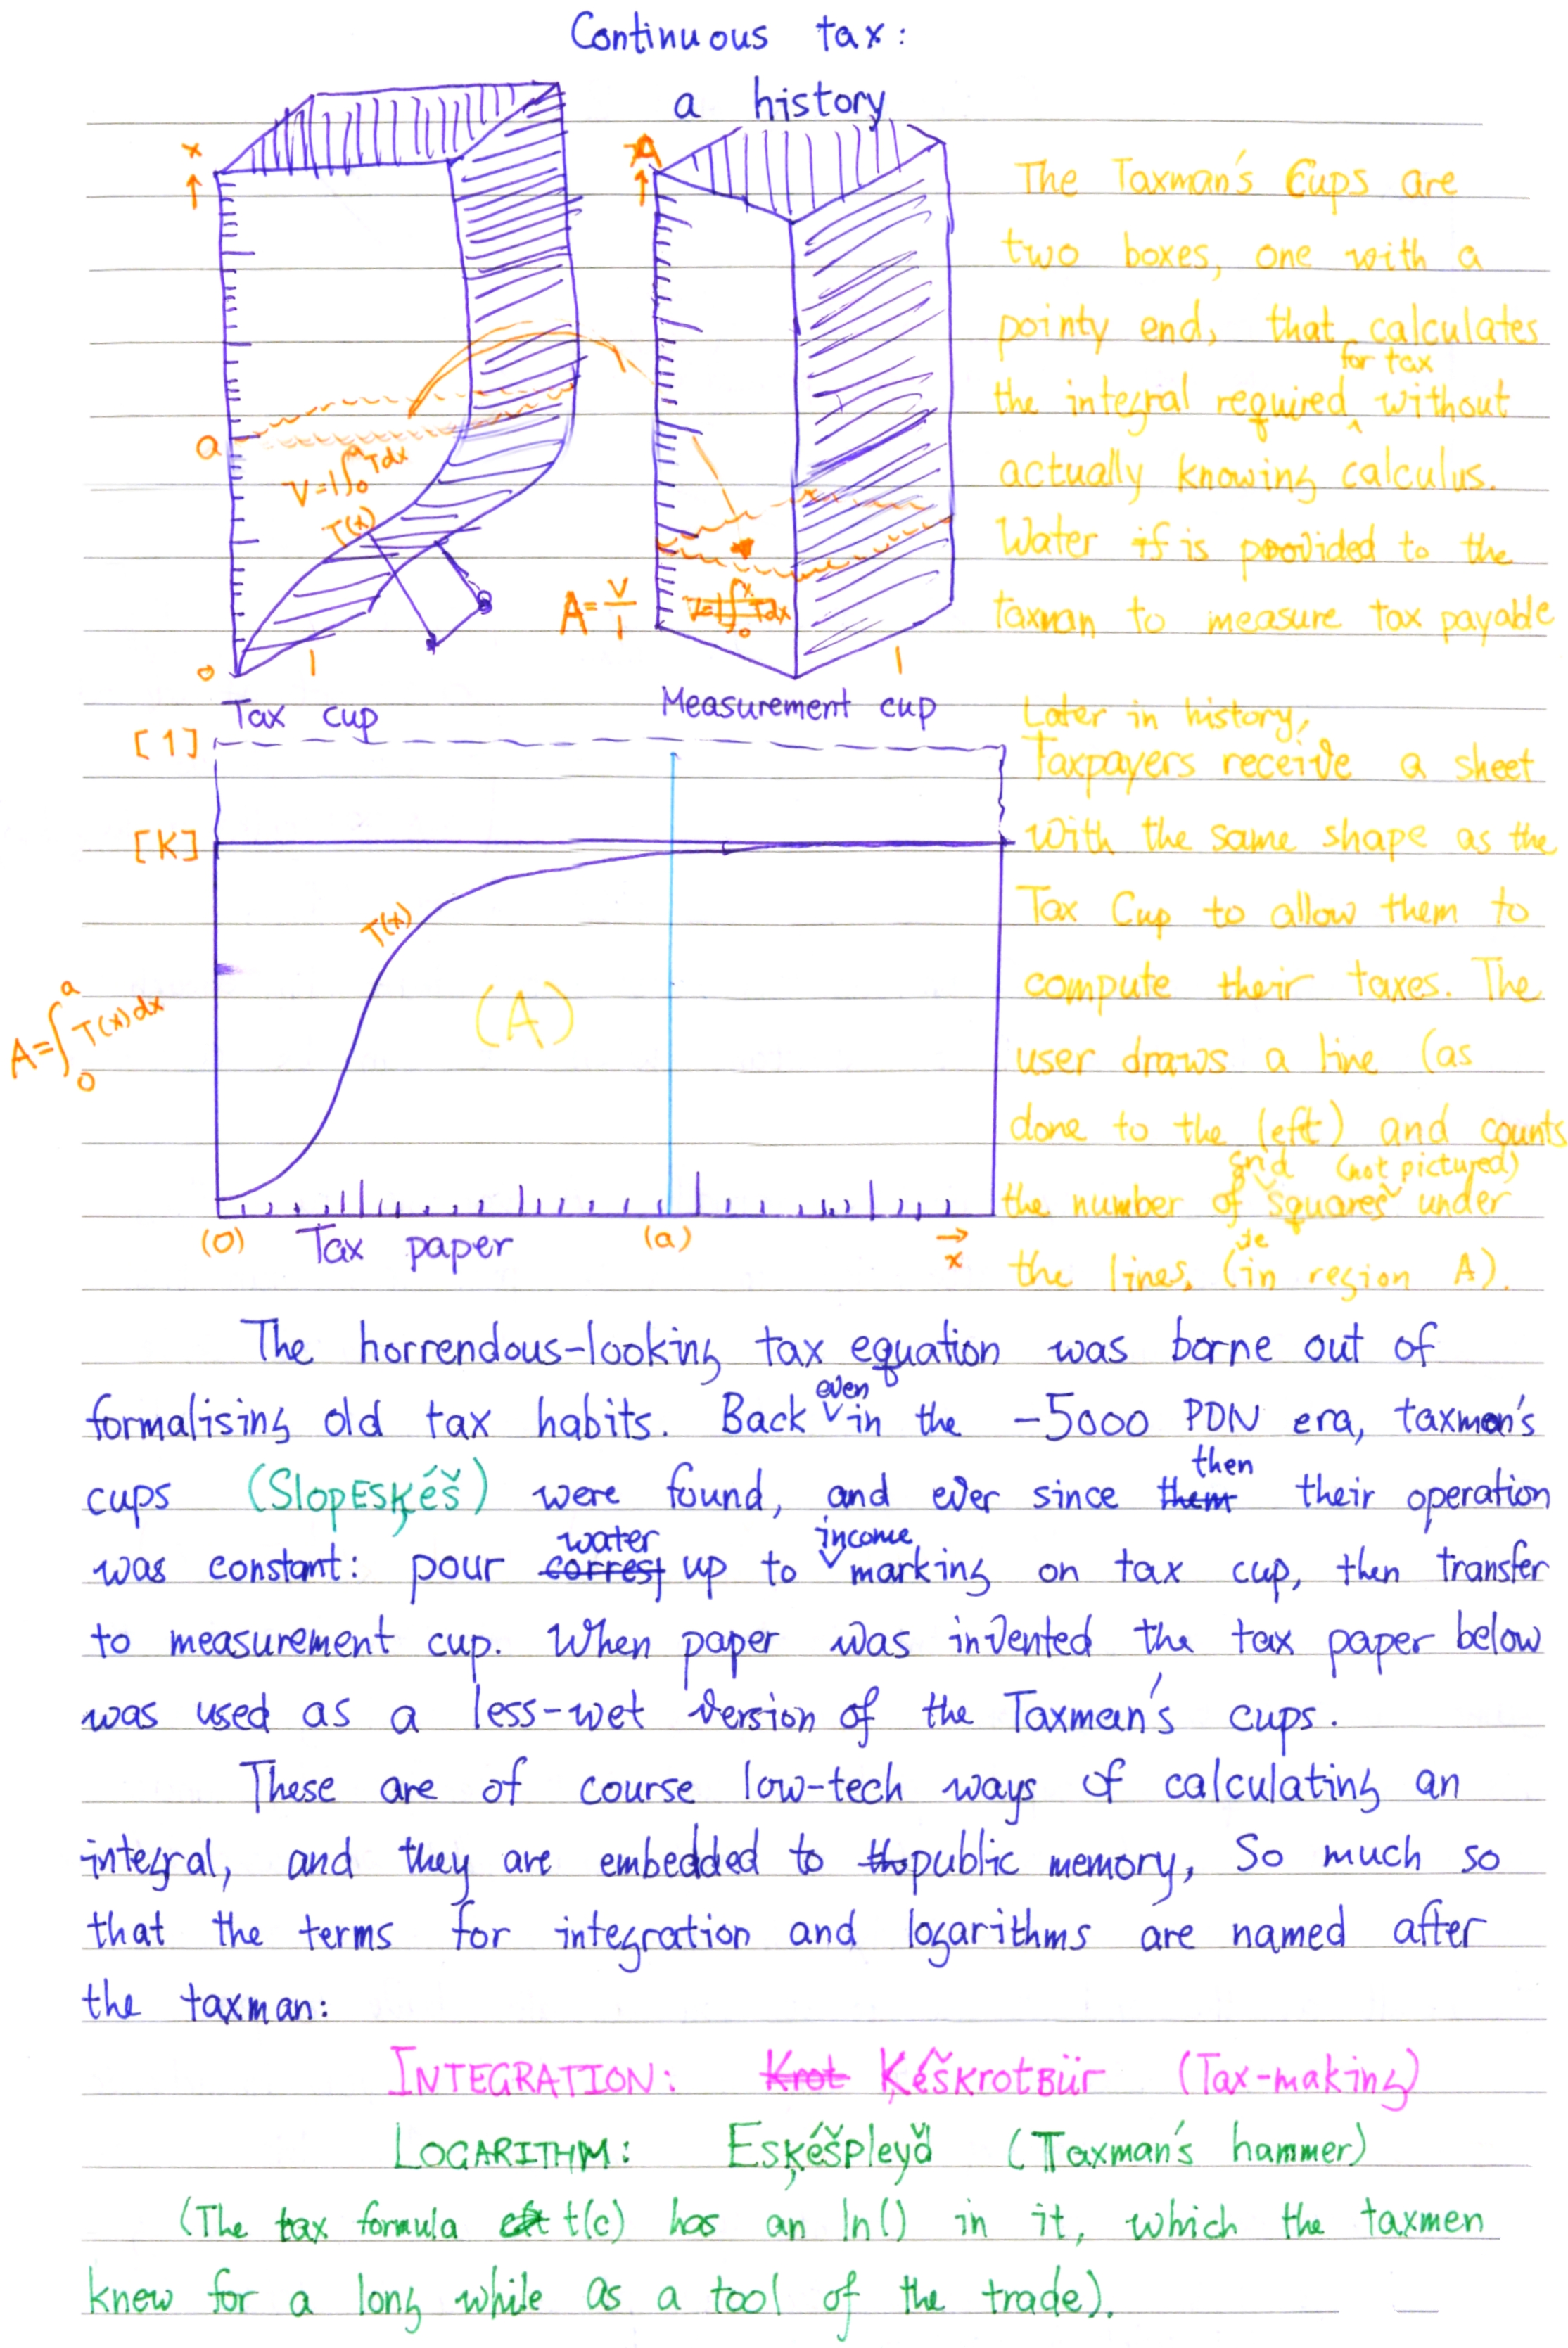 Continuous tax:
a history
x
↑
a
V=1∫₀ᵃTdx
T(x)
0
1
Tax cup
A
↑
A=V/1
V=1∫₀ˣTdx
1
Measurement cup
The Taxman's Cups are
two boxes, one with a
pointy end, that calculates
the integral required for tax without
actually knowing calculus.
Water if is provided to the
taxman to measure tax payable
Later in history,
Taxpayers receive a sheet
with the same shape as the
Tax Cup to allow them to
compute their taxes. The
user draws a line (as
done to the left) and counts
the number of grid squares (not pictured) under
the lines, (in region A).
[1]
[K]
T(x)
(A)
A=∫₀ᵃT(x)dx
(0)
Tax paper
(a)
→
x
The horrendous-looking tax equation was borne out of
formalising old tax habits. Back even in the -5000 PDN era, taxmen's
cups (SlopESķéš) were found, and ever since them then their operation
was constant: pour correst water up to income marking on tax cup, then transfer
to measurement cup. When paper was invented the tax paper below
was used as a less-wet version of the Taxman's cups.
These are of course low-tech ways of calculating an
integral, and they are embedded to tho public memory, So much so
that the terms for integration and logarithms are named after
the taxman:
INTEGRATION: Krot Ķéškrotʙür (Tax-making)
LOGARITHM: Esķéšpleyď (Taxman's hammer)
(The tax formula t(c) has an ln() in it, which the taxmen
knew for a long while as a tool of the trade).